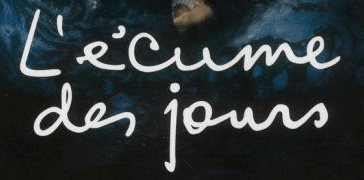 L'écume
des jours